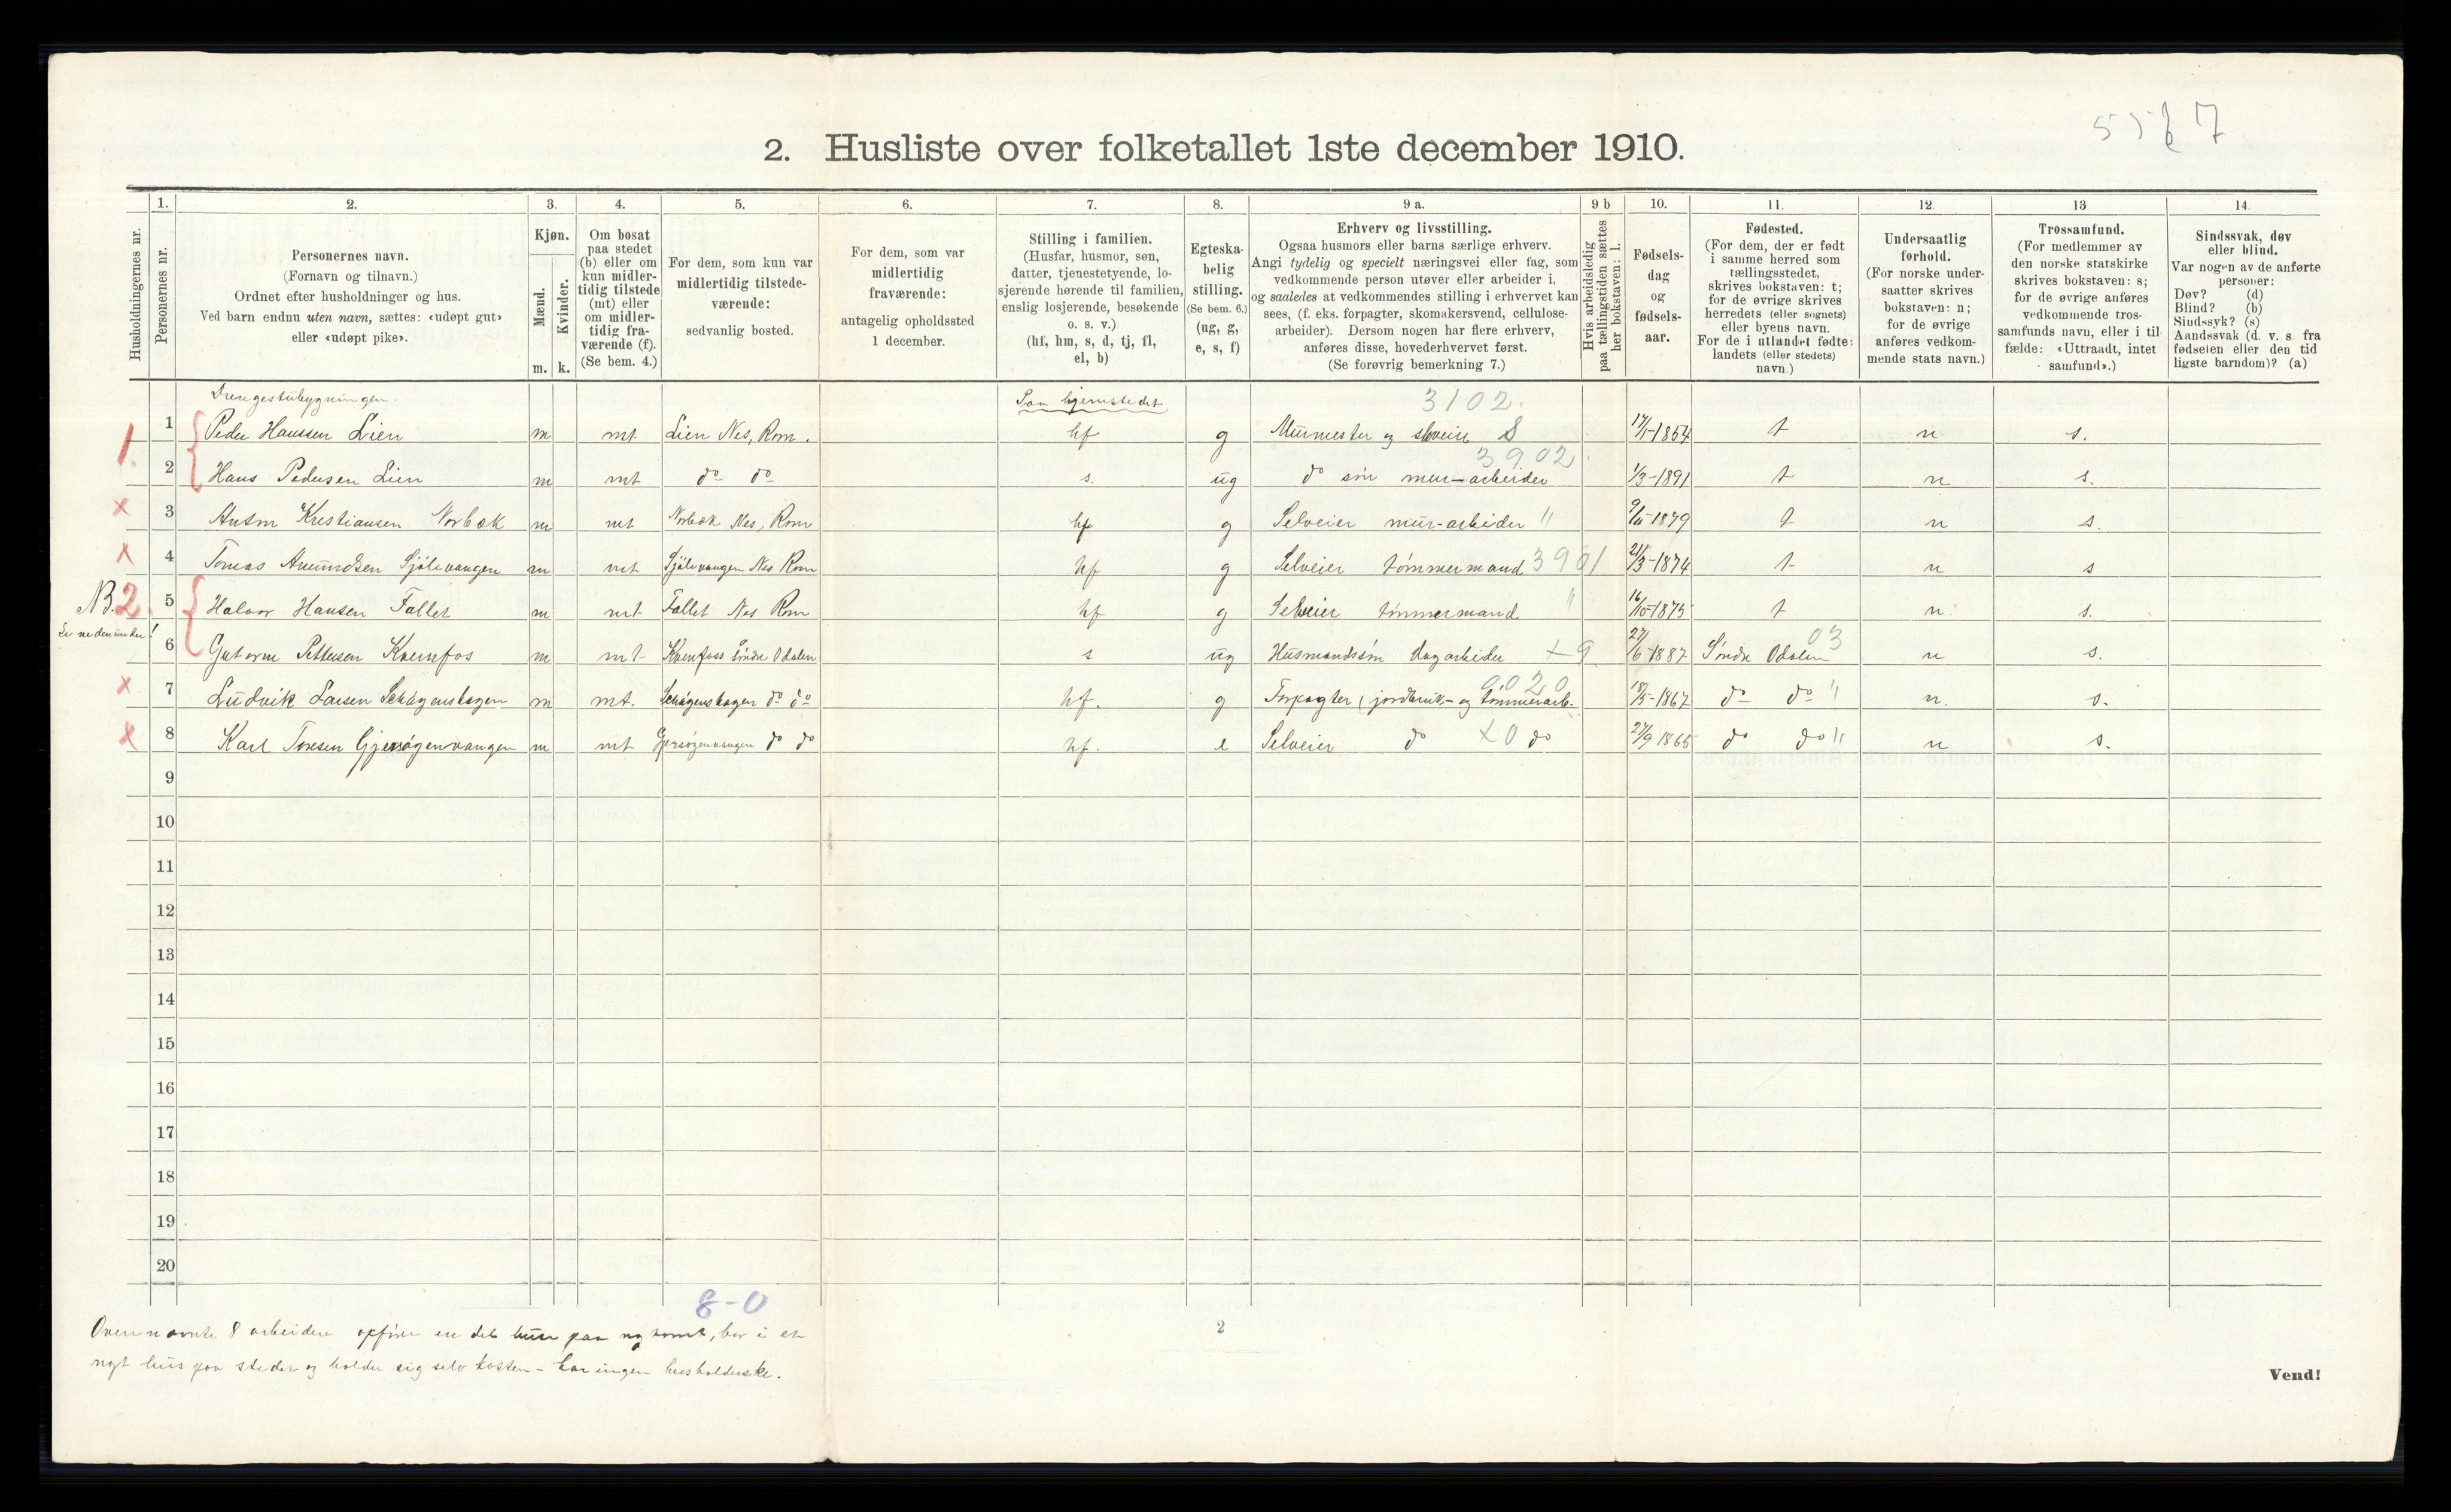 2. Husliste over folketallet 1ste december 1910.
Husholdningernes nr.
1.
Personernes nr.
2.
Personernes navn.
(Fornavn og tilnavn.)
Ordnet efter husholdninger og hus.
Ved barn endnu uten navn, sættes: «udøpt gut»
eller «udøpt pike».
3.
Kjøn.
Mænd.
Kvinder.
m. k.
4.
Om bosat
paa stedet
(b) eller om
kun midler-
tidig tilstede
(mt) eller
om midler-
tidig fra-
værende (f).
(Se bem. 4.)
5.
For dem, som kun var
midlertidig tilstede-
værende:
sedvanlig bosted.
6.
For dem, som var
midlertidig
fraværende:
antagelig opholdssted
1 december.
7.
Stilling i familien.
(Husfar, husmor, søn,
datter, tjenestetyende, lo-
sjerende hørende til familien,
enslig losjerende, besøkende
o. s. v.)
(hf, hm, s, d, tj, fl,
el, b)
8.
Egteska-
belig
stilling.
(Se bem. 6.)
(ug, g,
e, s, f)
9 a.
Erhverv og livsstilling.
Ogsaa husmors eller barns særlige erhverv.
Angi tydelig og specielt næringsvei eller fag, som
vedkommende person utøver eller arbeider i,
og saaledes at vedkommendes stilling i erhvervet kan
sees, (f. eks. forpagter, skomakersvend, cellulose-
arbeider). Dersom nogen har flere erhverv,
anføres disse, hovederhvervet først.
(Se forøvrig bemerkning 7.)
9 b
Hvis arbeidsledig
paa tællingstiden sættes
her bokstaven: l.
10.
Fødsels-
dag
og
fødsels-
aar.
11.
Fødested.
(For dem, der er født
i samme herred som
tællingsstedet,
skrives bokstaven: t;
for de øvrige skrives
herredets (eller sognets)
eller byens navn.
For de i utlandet fødte:
landets (eller stedets)
navn.)
12.
Undersaatlig
forhold.
(For norske under-
saatter skrives
bokstaven: n;
for de øvrige
anføres vedkom-
mende stats navn.)
13
Trossamfund.
(For medlemmer av
den norske statskirke
skrives bokstaven: s;
for de øvrige anføres
vedkommende tros-
samfunds navn, eller i til-
fælde: «Uttraadt, intet
samfund».)
14.
Sindssvak, døv
eller blind.
Var nogen av de anførte
personer:
Døv? (d)
Blind? (b)
Sindssyk? (s)
Aandssvak (d. v. s. fra
fødselen eller den tid
ligste barndom)? (a)
Drengestubygningen. Paa hjemstedet 3102.
1. 1 Peder Hanssen Lien m mt Lien Nes, Rom. hf g Murmester og selveier S 17/1-1864 t n s.
3902
2 Hans Pedersen Lien m mt do do s. ug do søn mur-arbeider 1/3-1891 t n s.
x 3 Anton Kristiansen Norbæk m mt Norbæk Nes, Rom hf g Selveier mur-arbeider " 9/11-1879 t n s.
x 4 Tomas Amundsen Sjølivangen m mt Sjølivangen Nes Rom hf g Selveier tømmermand 3901 21/3-1874 t n s
NB. 2. 5 Halvor Hansen Fallet m mt Fallet Nes Rom hf g Selveier tømmermand " 16/10-1875 t n. s.
Se nedenunder!
6 Gutorm Pettersen Kvernfos m mt Kvernfoss Søndre Odalen s ug Husmandssøn dagarbeider x9 27/6-1887 Søndre Odalen 03 n s.
0020
x 7 Ludvik Larsen Skaagenshagen m mt. do do hf. g Forpagter (jordbruk- og tømmerarb. 18/5-1867 do do " n. s.
x 8 Karl Toresen Gjersøgenvangen m mt Gjersøgenvangen do do hf. e Selveier do x0 do 27/9 1865 do do " n s.
9
10
11
12
13
14
15
16
17
18
19
20
8-0
Ovennævnte 8 arbeidere opfører en del huse paa , bor i et
nyt hus paa stedet og holder sig selv kosten - har ingen husholderske.
2
Vend!